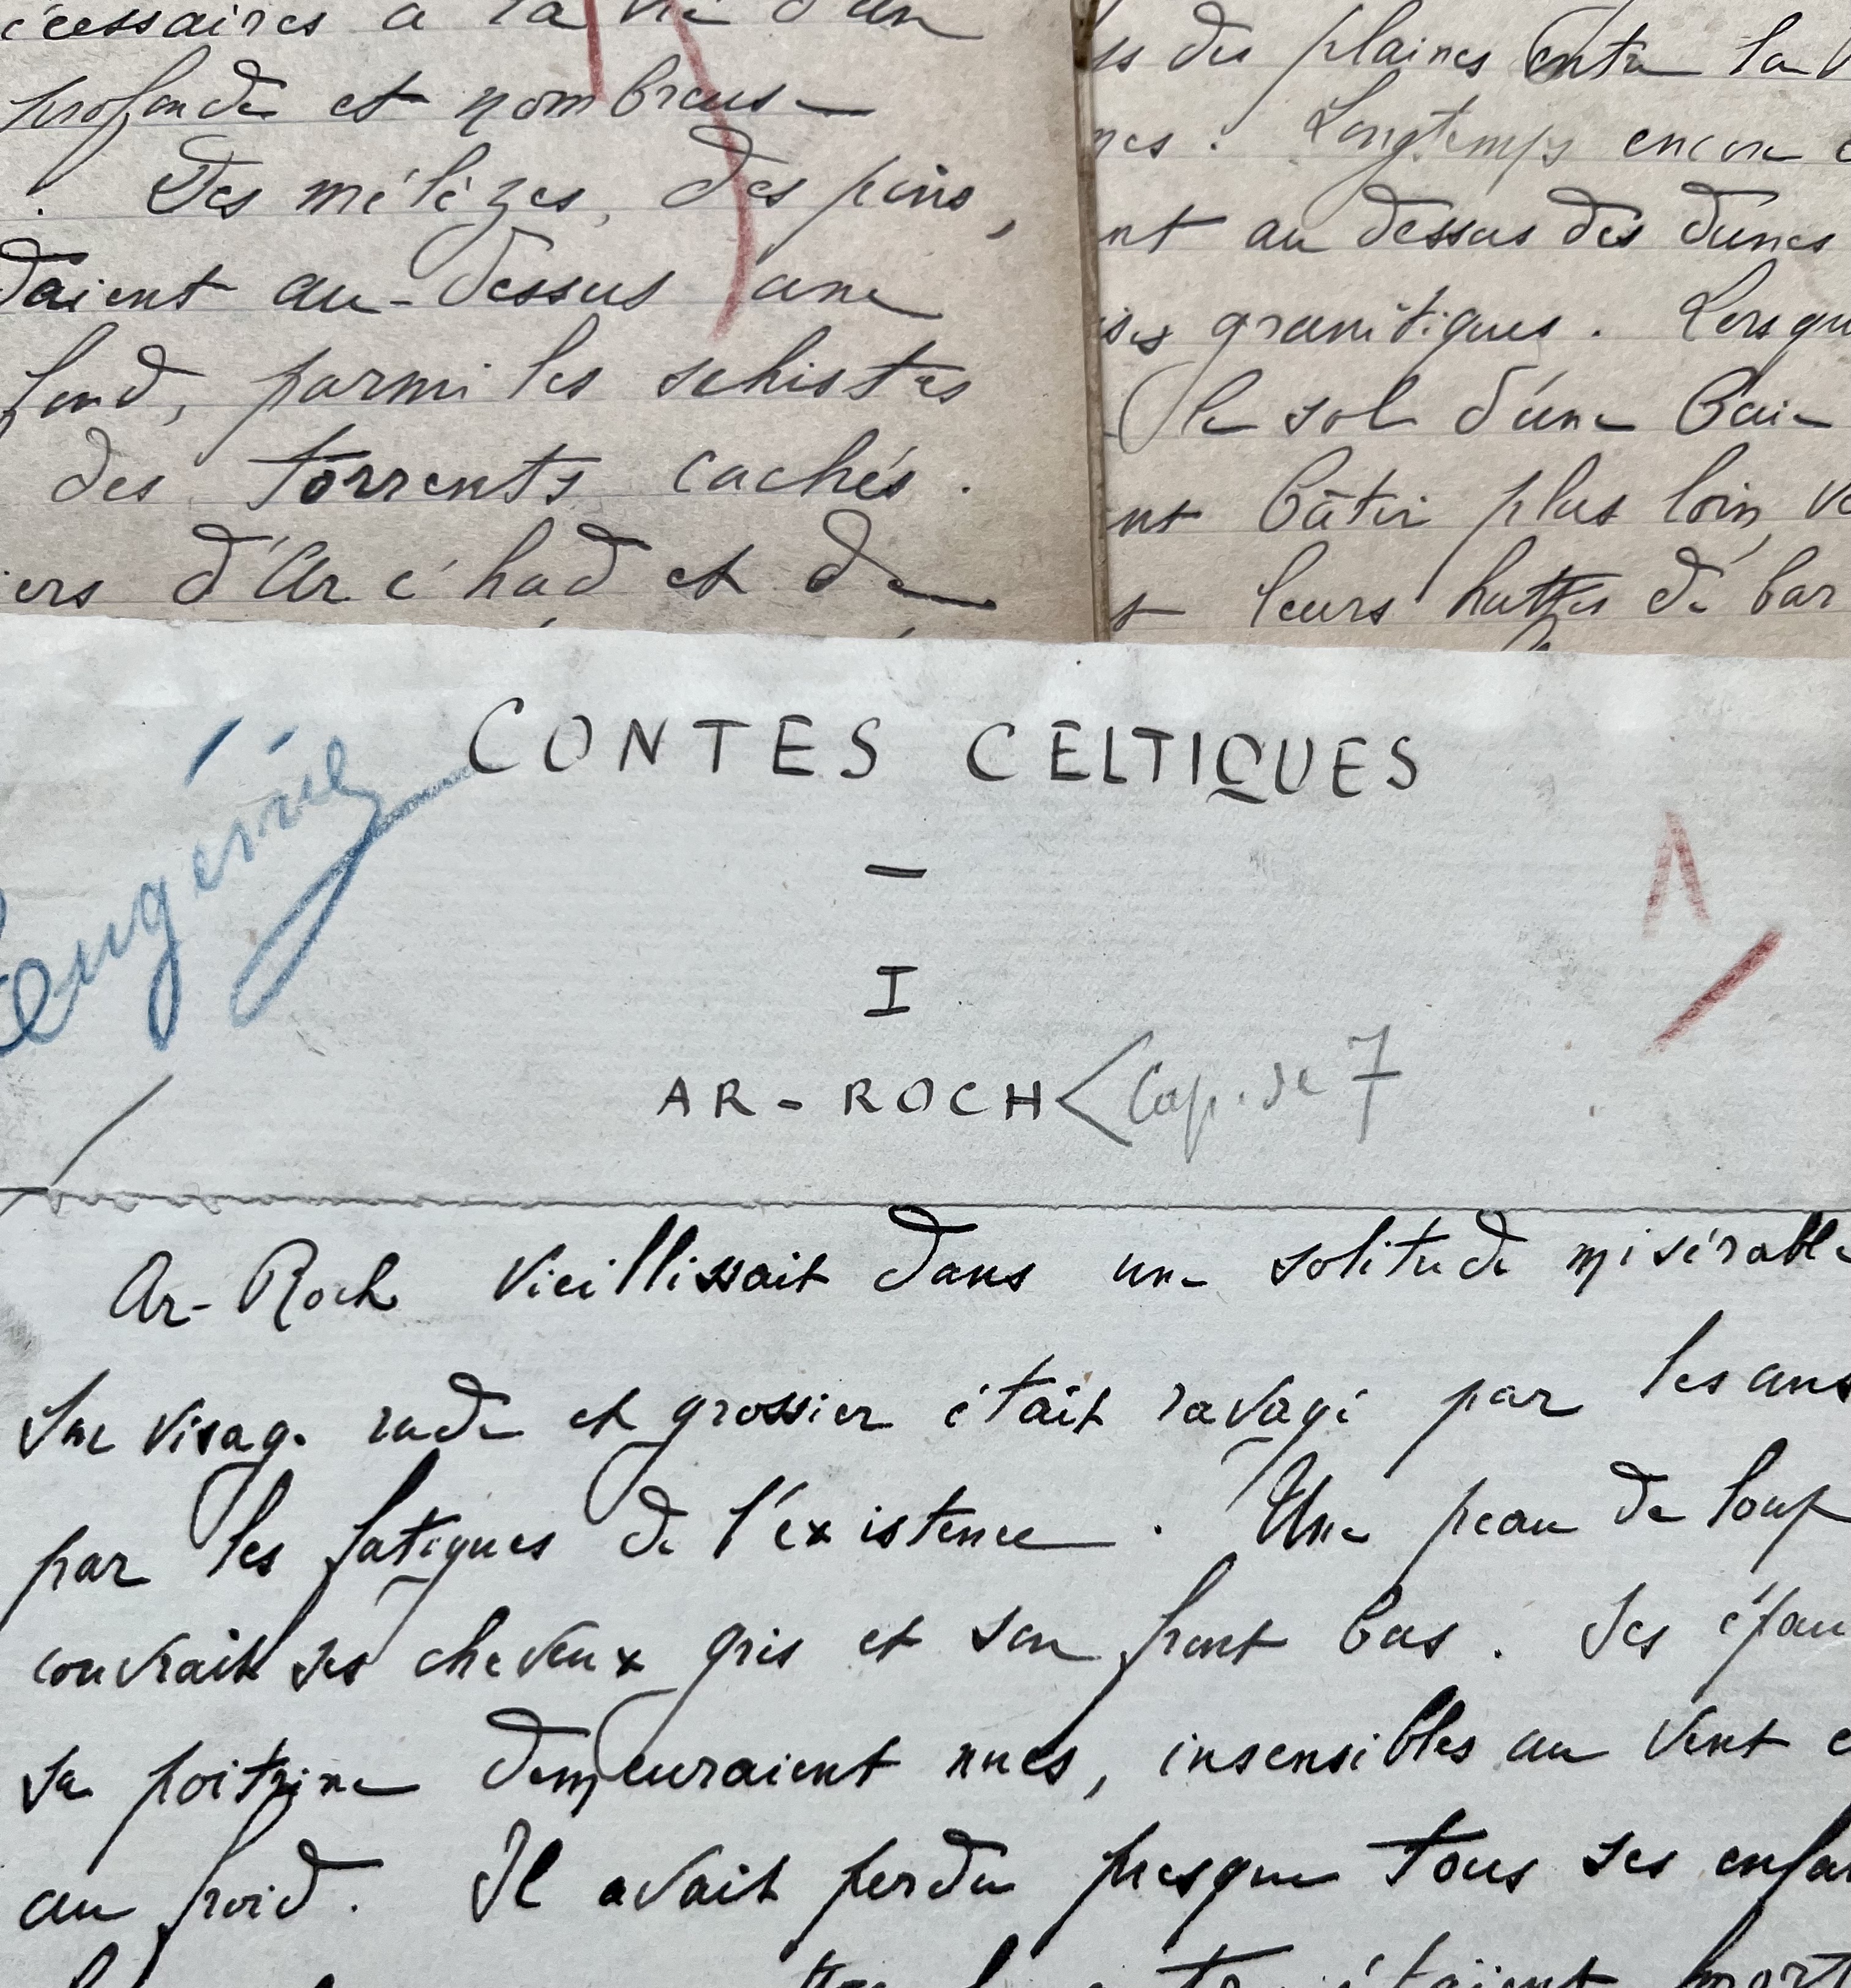 écessaires à la vie d'un
profonde et nombreuse
. Des mélèzes, des pins,
daient au-dessus une
fond, parmi les schistes
des torrents cachés.
ers d'Ar c'had et de
des plaines entre la
nes. Longtemps encore
nt au dessus des dunes
granitiques. Lorsqu
le sol d'une baie
nt bâtir plus loin,
leurs huttes de bar
CONTES CELTIQUES
Eugénie
—
I
AR-ROCH < Cap. de 7
Ar-Roch vieillissait dans une solitude misérable
Son visage rude et grossier était ravagé par les ans
par les fatigues de l'existence. Une peau de loup
couvrait ses cheveux gris et son front bas. Ses épau
sa poitrine demeuraient nues, insensibles au vent e
au froid. Il avait perdu presque tous ses enfan
étaient mort